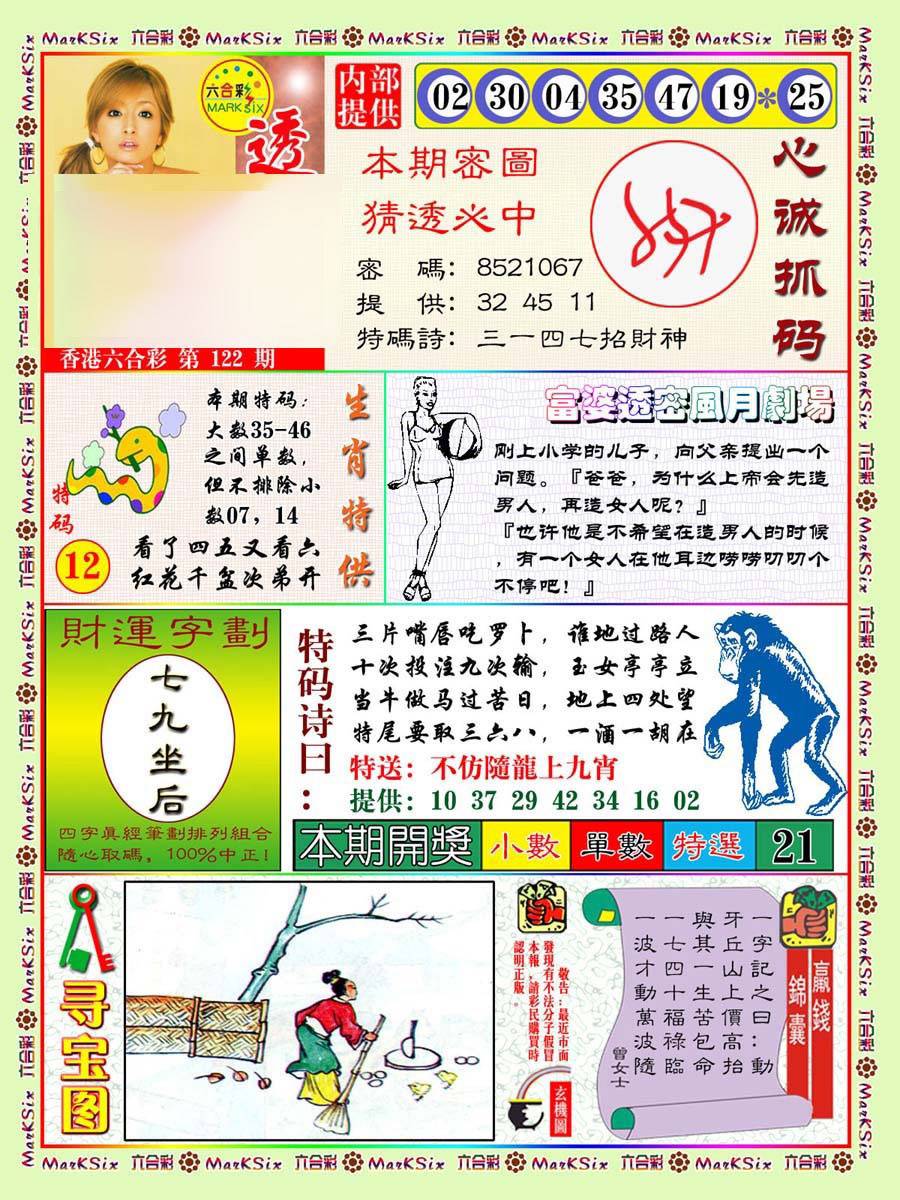 MarKSix 六合彩 MarKSix 六合彩 MarKSix 六合彩 MarKSix 六合彩 MarKSix 六合彩
六合彩
MARK six
透
香港六合彩 第 122 期
内部
提供
02 30 04 35 47 19*25
本期密圖
猜透必中
密 碼: 8521067
提 供: 32 45 11
特碼詩: 三一四七招財神
心诚抓码
特码
12
本期特码:
大数35-46
之间单数,
但不排除小
数07, 14
看了四五又看六
红花千盆次弟开
生肖特供
富婆透密風月劇場
刚上小学的儿子, 向父亲提出一个
问题。『爸爸, 为什么上帝会先造
男人, 再造女人呢? 』
『也许他是不希望在造男人的时候
, 有一个女人在他耳边唠唠叨叨个
不停吧! 』
財運字劃
七九坐后
四字真經筆劃排列組合
隨心取碼, 100%中正!
特码诗曰:
三片嘴唇吃罗卜, 谁地过路人
十次投注九次输, 玉女亭亭立
当牛做马过苦日, 地上四处望
特尾要取三六八, 一酒一胡在
特送: 不仿隨龍上九宵
提供: 10 37 29 42 34 16 02
本期開獎 小數 單數 特選 21
寻宝图
敬告:最近市面
發現有不法分子假冒
本報,請彩民購買時
認明正版。
玄機圖
贏錢
錦囊
一字記之曰:動
牙丘山上價高抬
與其一生苦包命
一七四十福祿臨
一波才動萬波隨
曾女士
MarKSix 六合彩 MarKSix 六合彩 MarKSix 六合彩 MarKSix 六合彩 MarKSix 六合彩